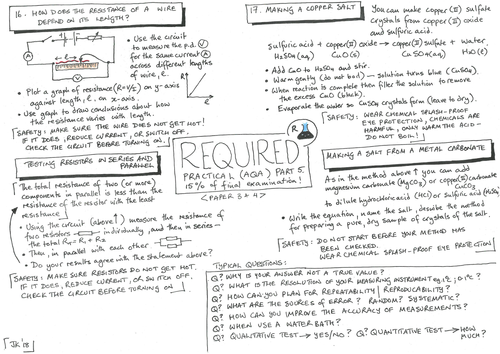 16. HOW DOES THE RESISTANCE OF A WIRE
DEPEND ON ITS LENGTH?
• Use the circuit
to measure the p.d. V
for the same current A
across different lengths
of wire, l.
• Plot a graph of resistance (R=V/I) on y-axis
against length, l, on x-axis.
• Use graph to draw conclusions about how
the resistance varies with length.
SAFETY: MAKE SURE THE WIRE DOES NOT GET HOT!
IF IT DOES, REDUCE CURRENT, OR SWITCH OFF.
CHECK THE CIRCUIT BEFORE TURNING ON!
TESTING RESISTORS IN SERIES AND
PARALLEL
The total resistance of two (or more)
components in parallel is less than the
resistance of the resistor with the least
resistance.
• Using the circuit (above↑) measure the resistance of
two resistors individually, and then in series—
the total RT = R1 + R2
• Then, in parallel with each other
• Do your results agree with the statement above?
SAFETY: MAKE SURE RESISTORS DO NOT GET HOT.
IF IT DOES, REDUCE CURRENT, OR SWITCH OFF.
CHECK THE CIRCUIT BEFORE TURNING ON
JK'18
REQUIRED
R
PRACTICAL (AQA) PART 5.
15% of final examination!
<PAPER 3+4>
17. MAKING A COPPER SALT
You can make copper (II) sulfate
crystals from copper (II) oxide
and sulfuric acid.
sulfuric acid + copper(II) oxide → copper(II) sulfate + water
H2SO4 (aq) CuO(s) CuSO4(aq) H2O(l)
• Add CuO to H2SO4 and stir.
• Warm gently (do not boil) — solution turns blue (CuSO4).
• When reaction is complete then filter the solution to remove
the excess CuO (black).
• Evaporate the water so CuSO4 crystals form (leave to dry).
SAFETY: WEAR CHEMICAL SPLASH-PROOF
EYE PROTECTION, CHEMICALS ARE
HARMFUL, ONLY WARM THE ACID —
DO NOT BOIL!
MAKING A SALT FROM A METAL CARBONATE
As in the method above ↑ you can add
magnesium carbonate (MgCO3) or copper(II) carbonate
CuCO3
to dilute hydrochloric (HCl) or sulfuric acid (H2SO4)
• Write the equation, name the salt, describe the method
for preparing a pure, dry sample of crystals of the salt.
SAFETY: DO NOT START BEFORE YOUR METHOD HAS
BEEN CHECKED.
WEAR CHEMICAL SPLASH-PROOF EYE PROTECTION
TYPICAL QUESTIONS:
Q? WHY IS YOUR ANSWER NOT A TRUE VALUE?
Q? WHAT IS THE RESOLUTION OF YOUR MEASURING INSTRUMENT
Q? HOW CAN YOU PLAN FOR REPEATABILITY / REPRODUCIBILITY?
Q? WHAT ARE THE SOURCES OF ERROR? RANDOM? SYSTEMATIC?
Q? HOW CAN YOU IMPROVE THE ACCURACY OF MEASUREMENTS?
Q? WHEN USE A WATER BATH?
Q? QUALITATIVE TEST → YES/NO? Q? QUANTITATIVE TEST → HOW
MUCH?